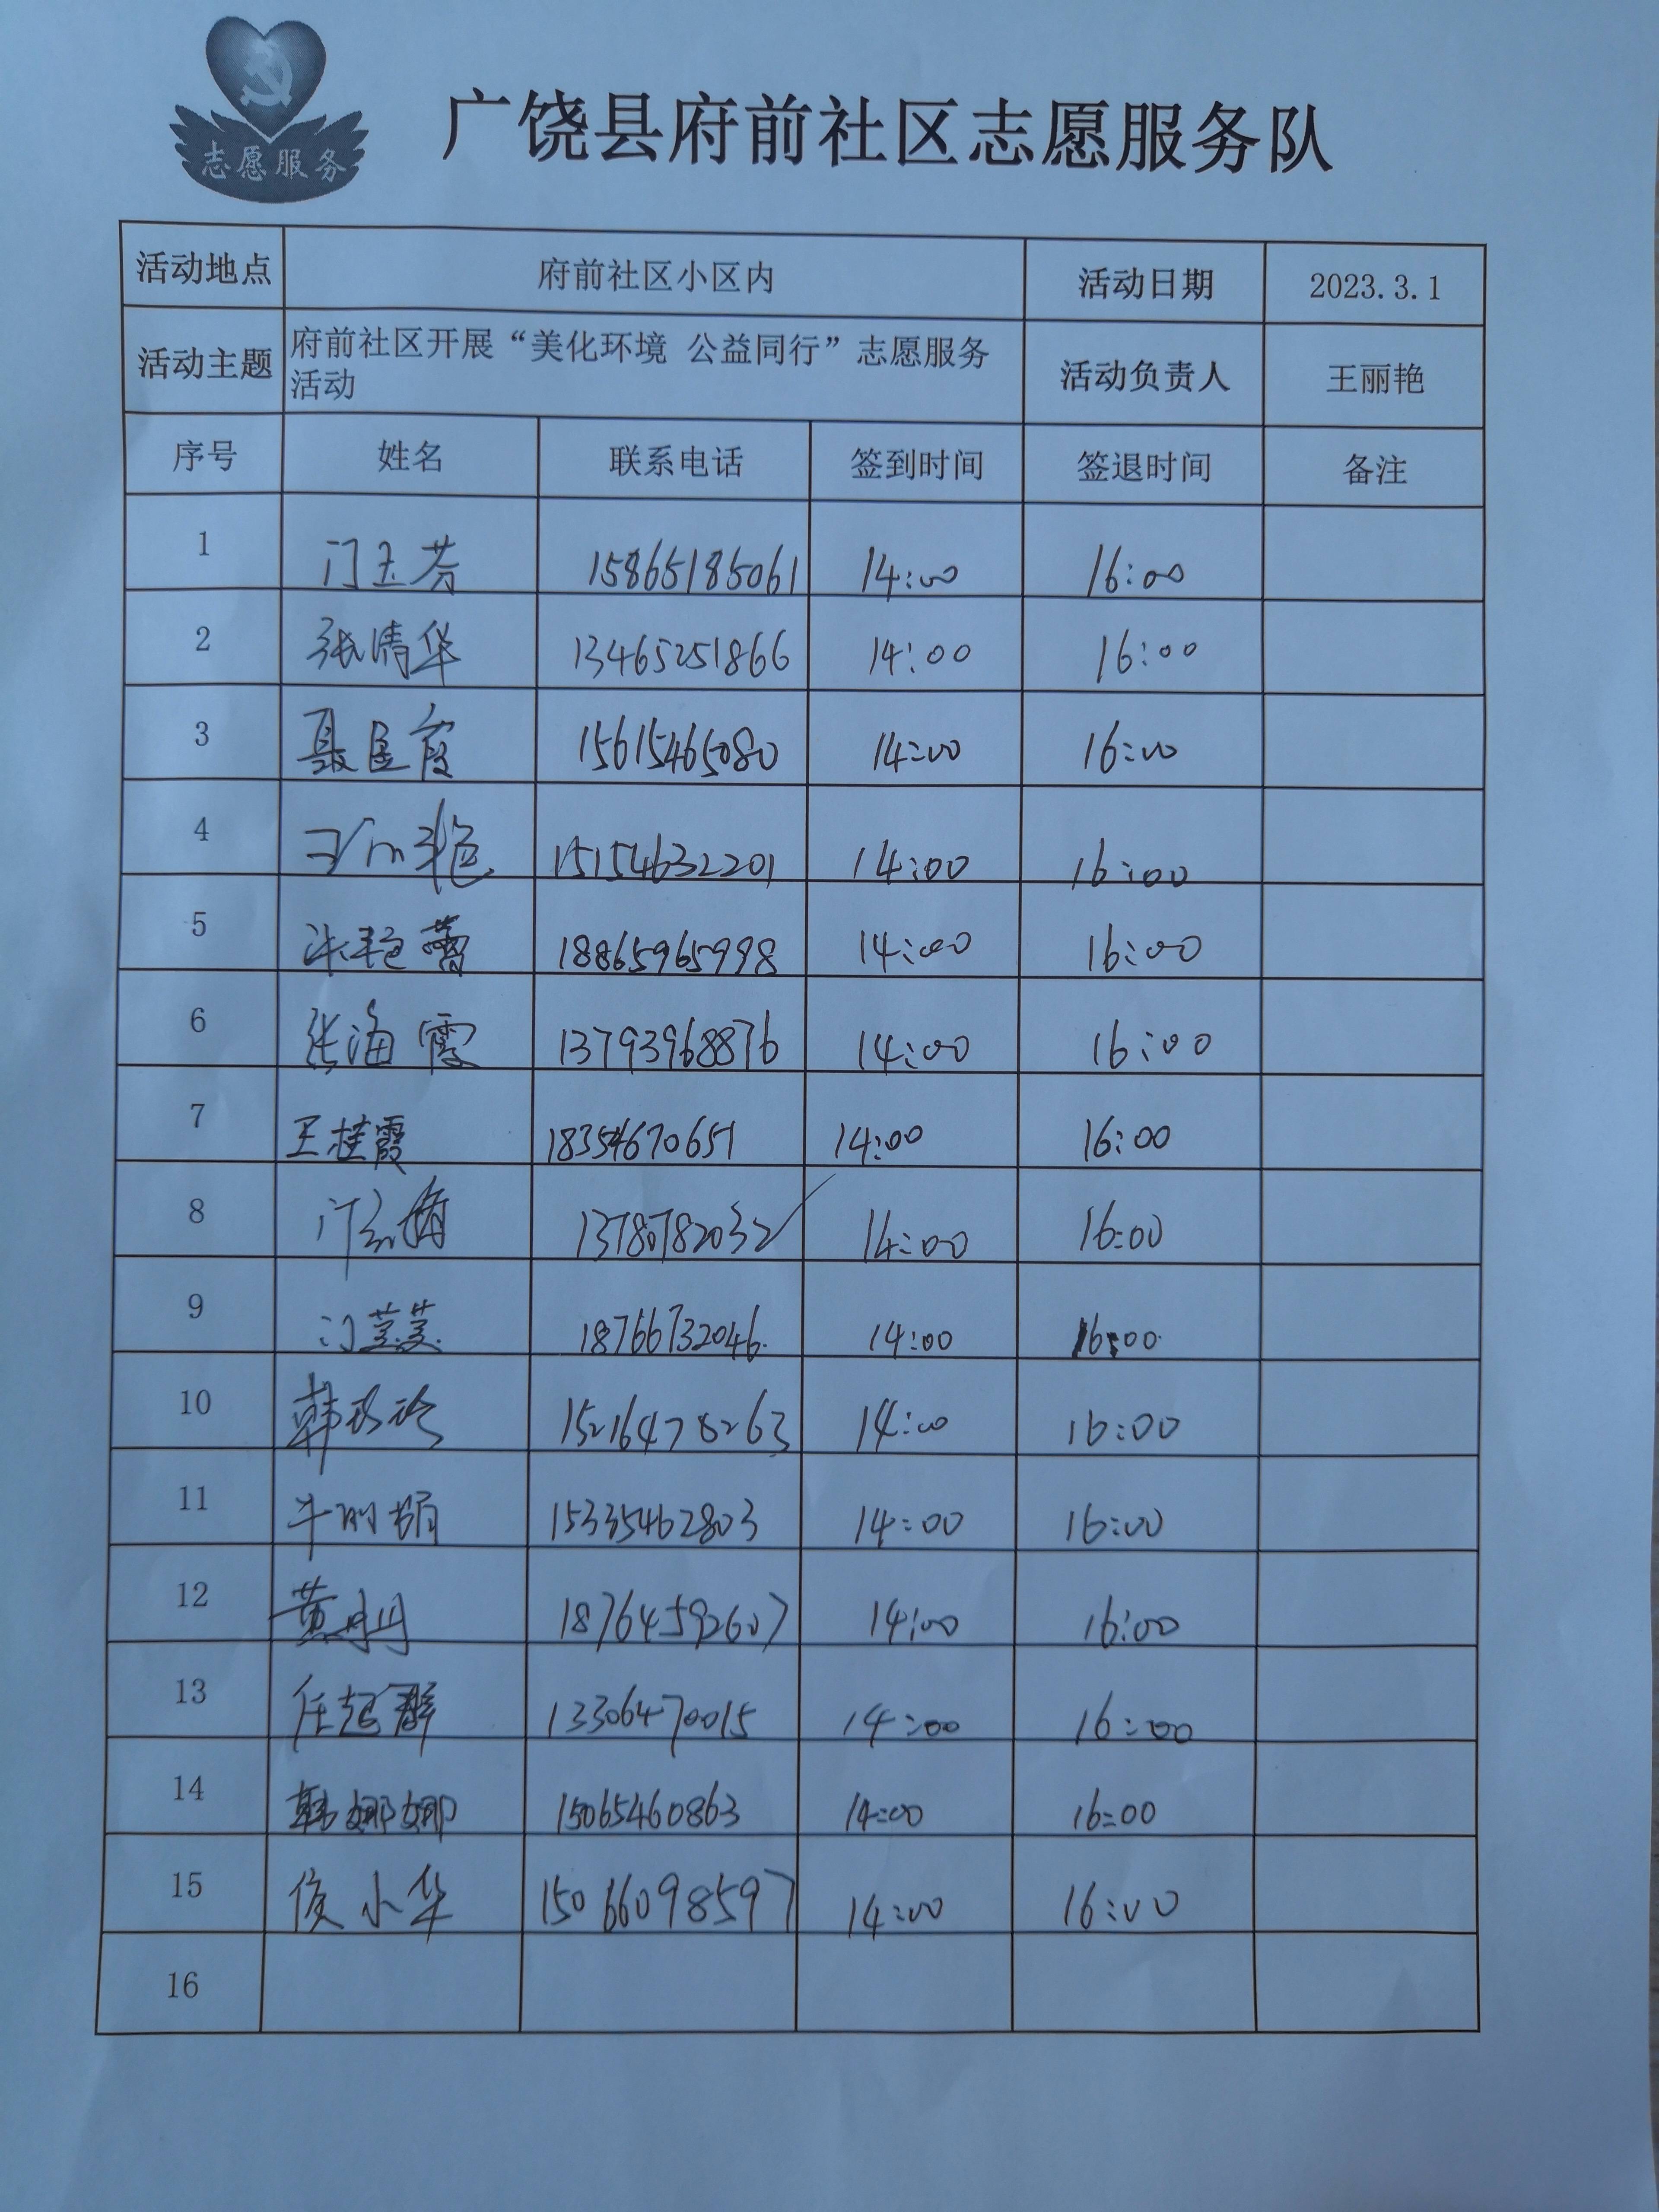 志愿服务
广饶县府前社区志愿服务队
活动地点 府前社区小区内 活动日期 2023.3.1
活动主题 府前社区开展“美化环境 公益同行”志愿服务
活动 活动负责人 王丽艳
序号 姓名 联系电话 签到时间 签退时间 备注
1 门玉芬 15865185061 14:00 16:00
2 张清华 13465251866 14:00 16:00
3 聂星霞 15615465080 14:00 16:00
4 王丽艳 15154632201 14:00 16:00
5 张艳蕾 18865965998 14:00 16:00
6 张海霞 13793968876 14:00 16:00
7 王桂霞 18354670651 14:00 16:00
8 13780782032 14:00 16:00
9 门 18766732046 14:00 16:00
10 韩玲玲 15216478263 14:00 16:00
11 牛丽娟 15335462803 14:00 16:00
12 黄丹丹 18764592607 14:00 16:00
13 任起群 13306470015 14:00 16:00
14 韩娜娜 15065460863 14:00 16:00
15 侯小华 15066098597 14:00 16:00
16